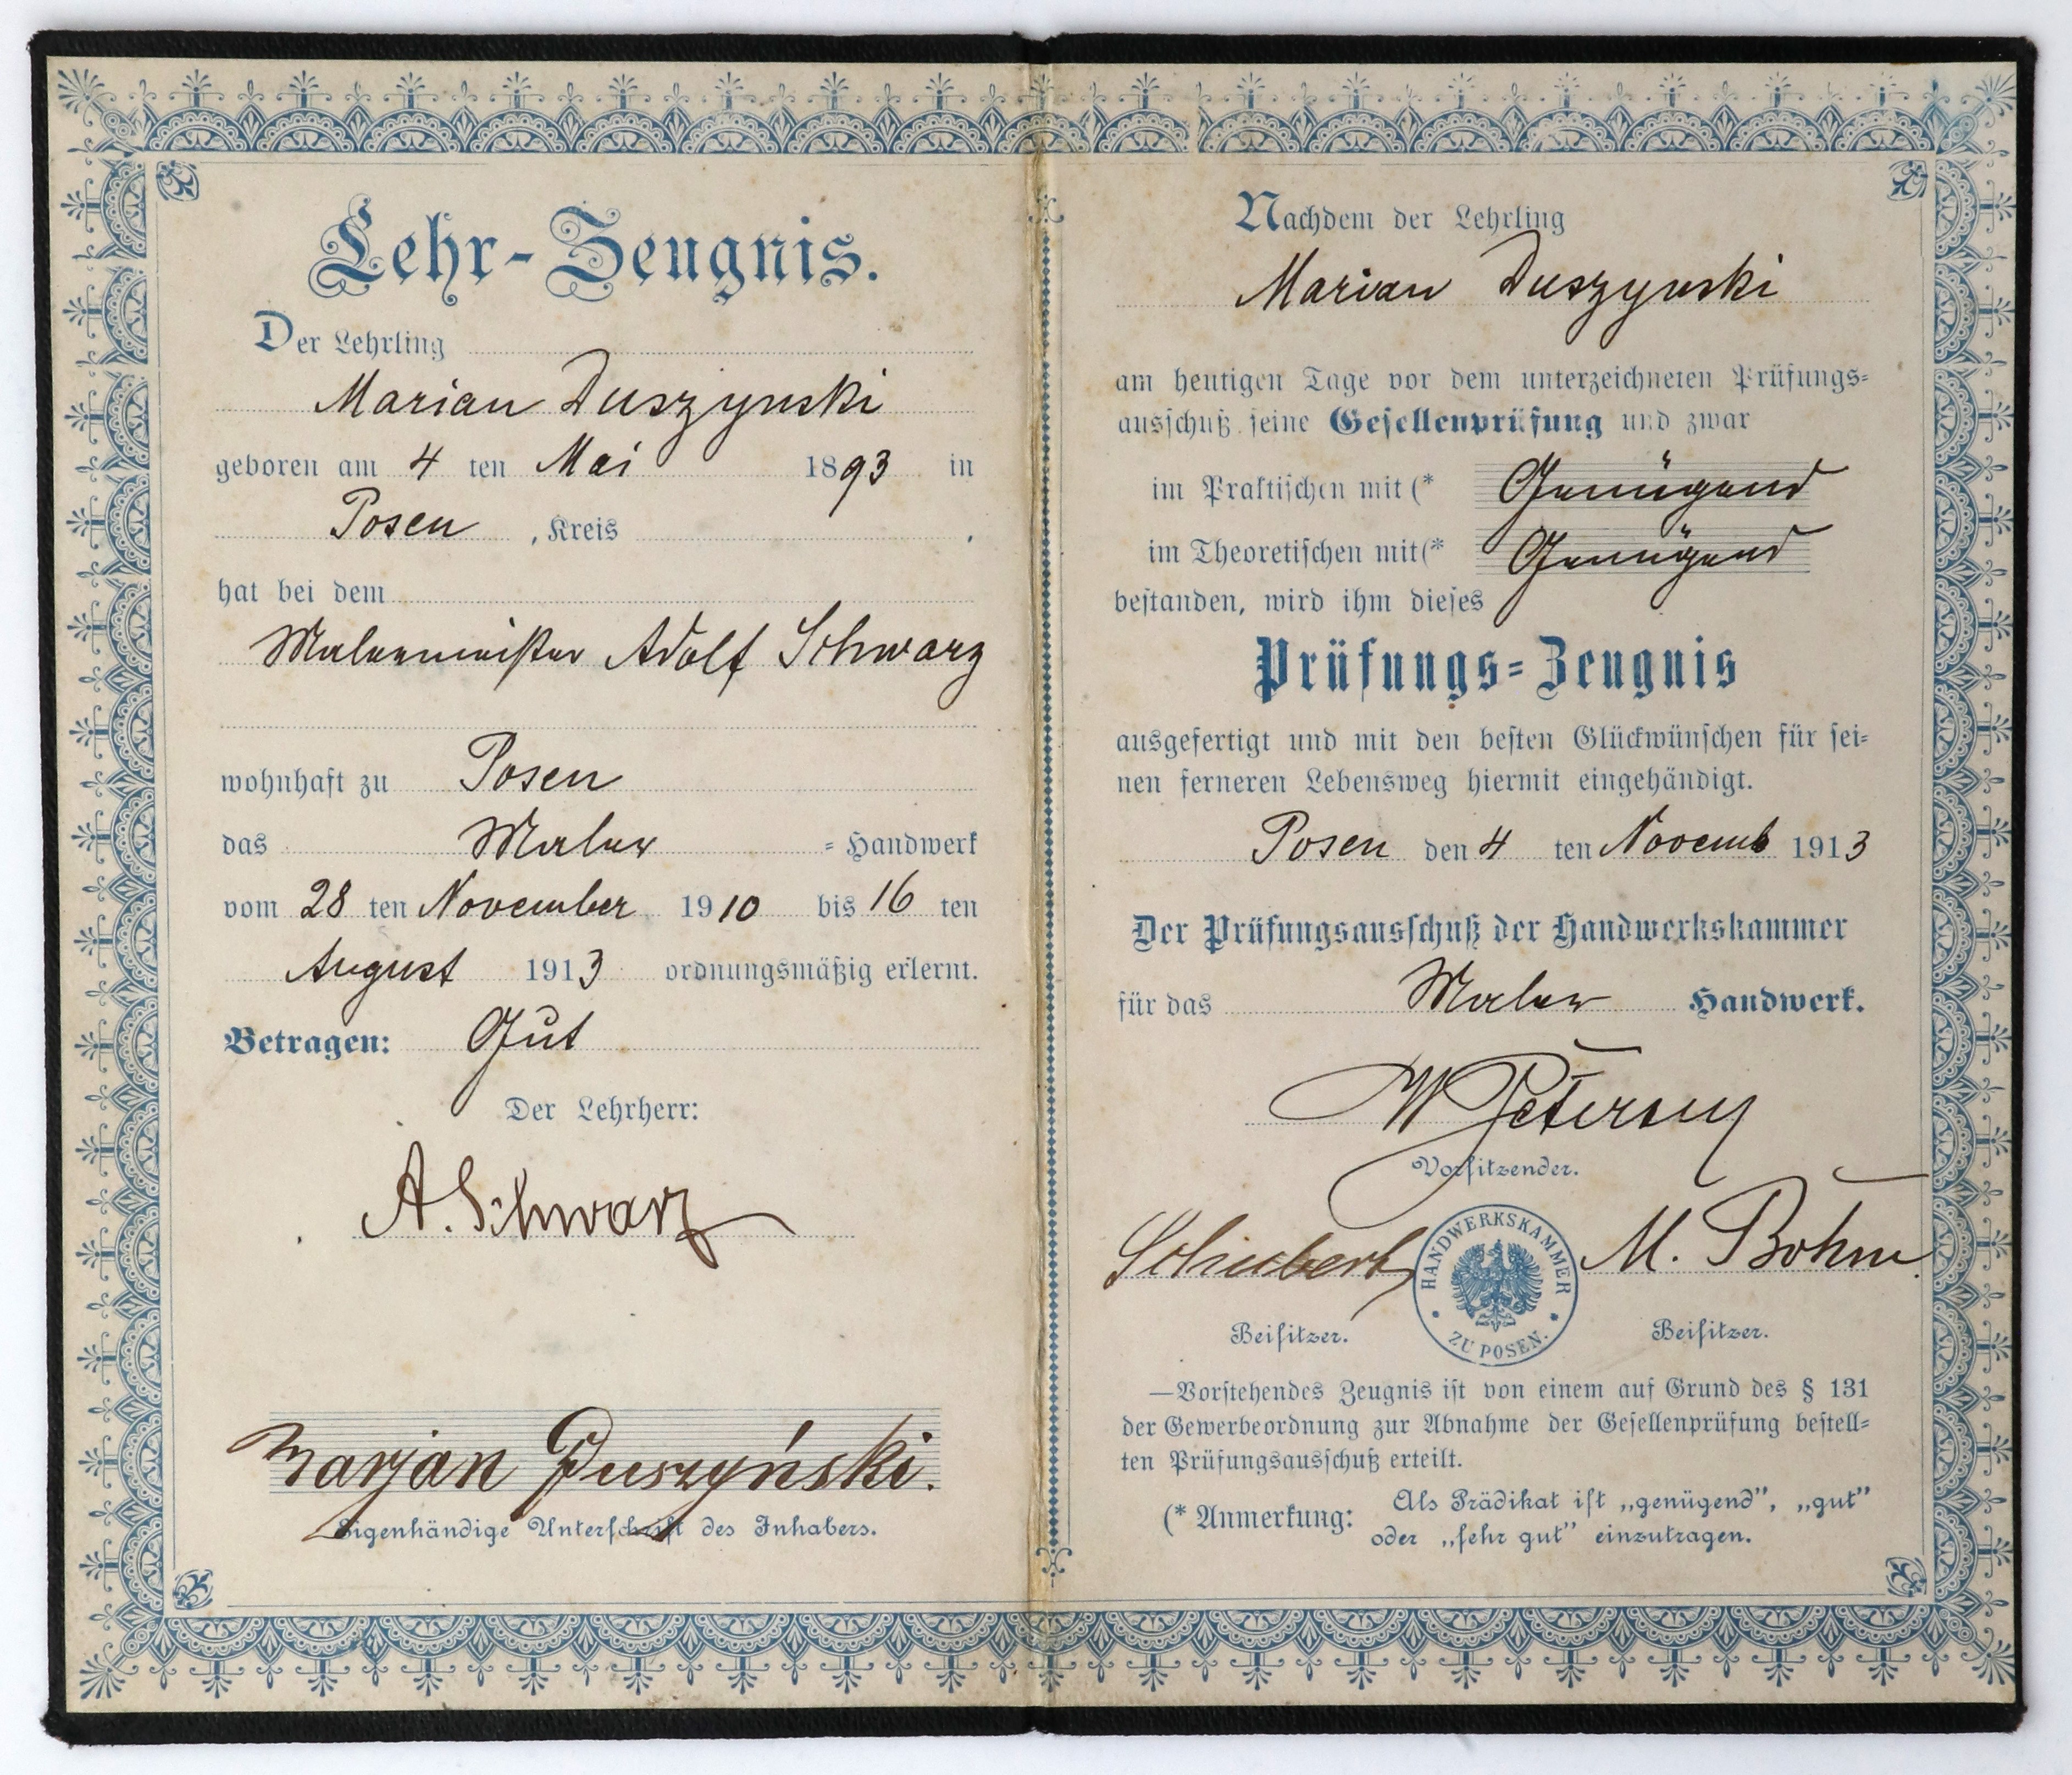 Lehr-Zeugnis.
Der Lehrling
Marian Duszynski
geboren am 4 ten Mai 1893 in
Posen , Kreis .
hat bei dem
Malermeister Adolf Schwarz
wohnhaft zu Posen
das Maler = Handwerk
vom 28 ten November 1910 bis 16 ten
August 1913 ordnungsmäßig erlernt.
Betragen: Gut
Der Lehrherr:
A. Schwarz
Marjan Duszyński.
Eigenhändige Unterschrift des Inhabers.
Nachdem der Lehrling
Marian Duszynski
am heutigen Tage vor dem unterzeichneten Prüfungs=
ausschuß seine Gesellenprüfung und zwar
im Praktischen mit (* Genügend
im Theoretischen mit (* Genügend
bestanden, wird ihm dieses
Prüfungs=Zeugnis
ausgefertigt und mit den besten Glückwünschen für sei=
nen ferneren Lebensweg hiermit eingehändigt.
Posen den 4 ten Novemb 1913
Der Prüfungsausschuß der Handwerkskammer
für das Maler Handwerk.
W Petersen
Vorsitzender.
Schubert M. Bohm
HANDWERKSKAMMER
ZU POSEN.
Beisitzer. Beisitzer.
—Vorstehendes Zeugnis ist von einem auf Grund des § 131
der Gewerbeordnung zur Abnahme der Gesellenprüfung bestell=
ten Prüfungsausschuß erteilt.
(* Anmerkung: Als Prädikat ist „genügend", „gut"
oder „sehr gut" einzutragen.